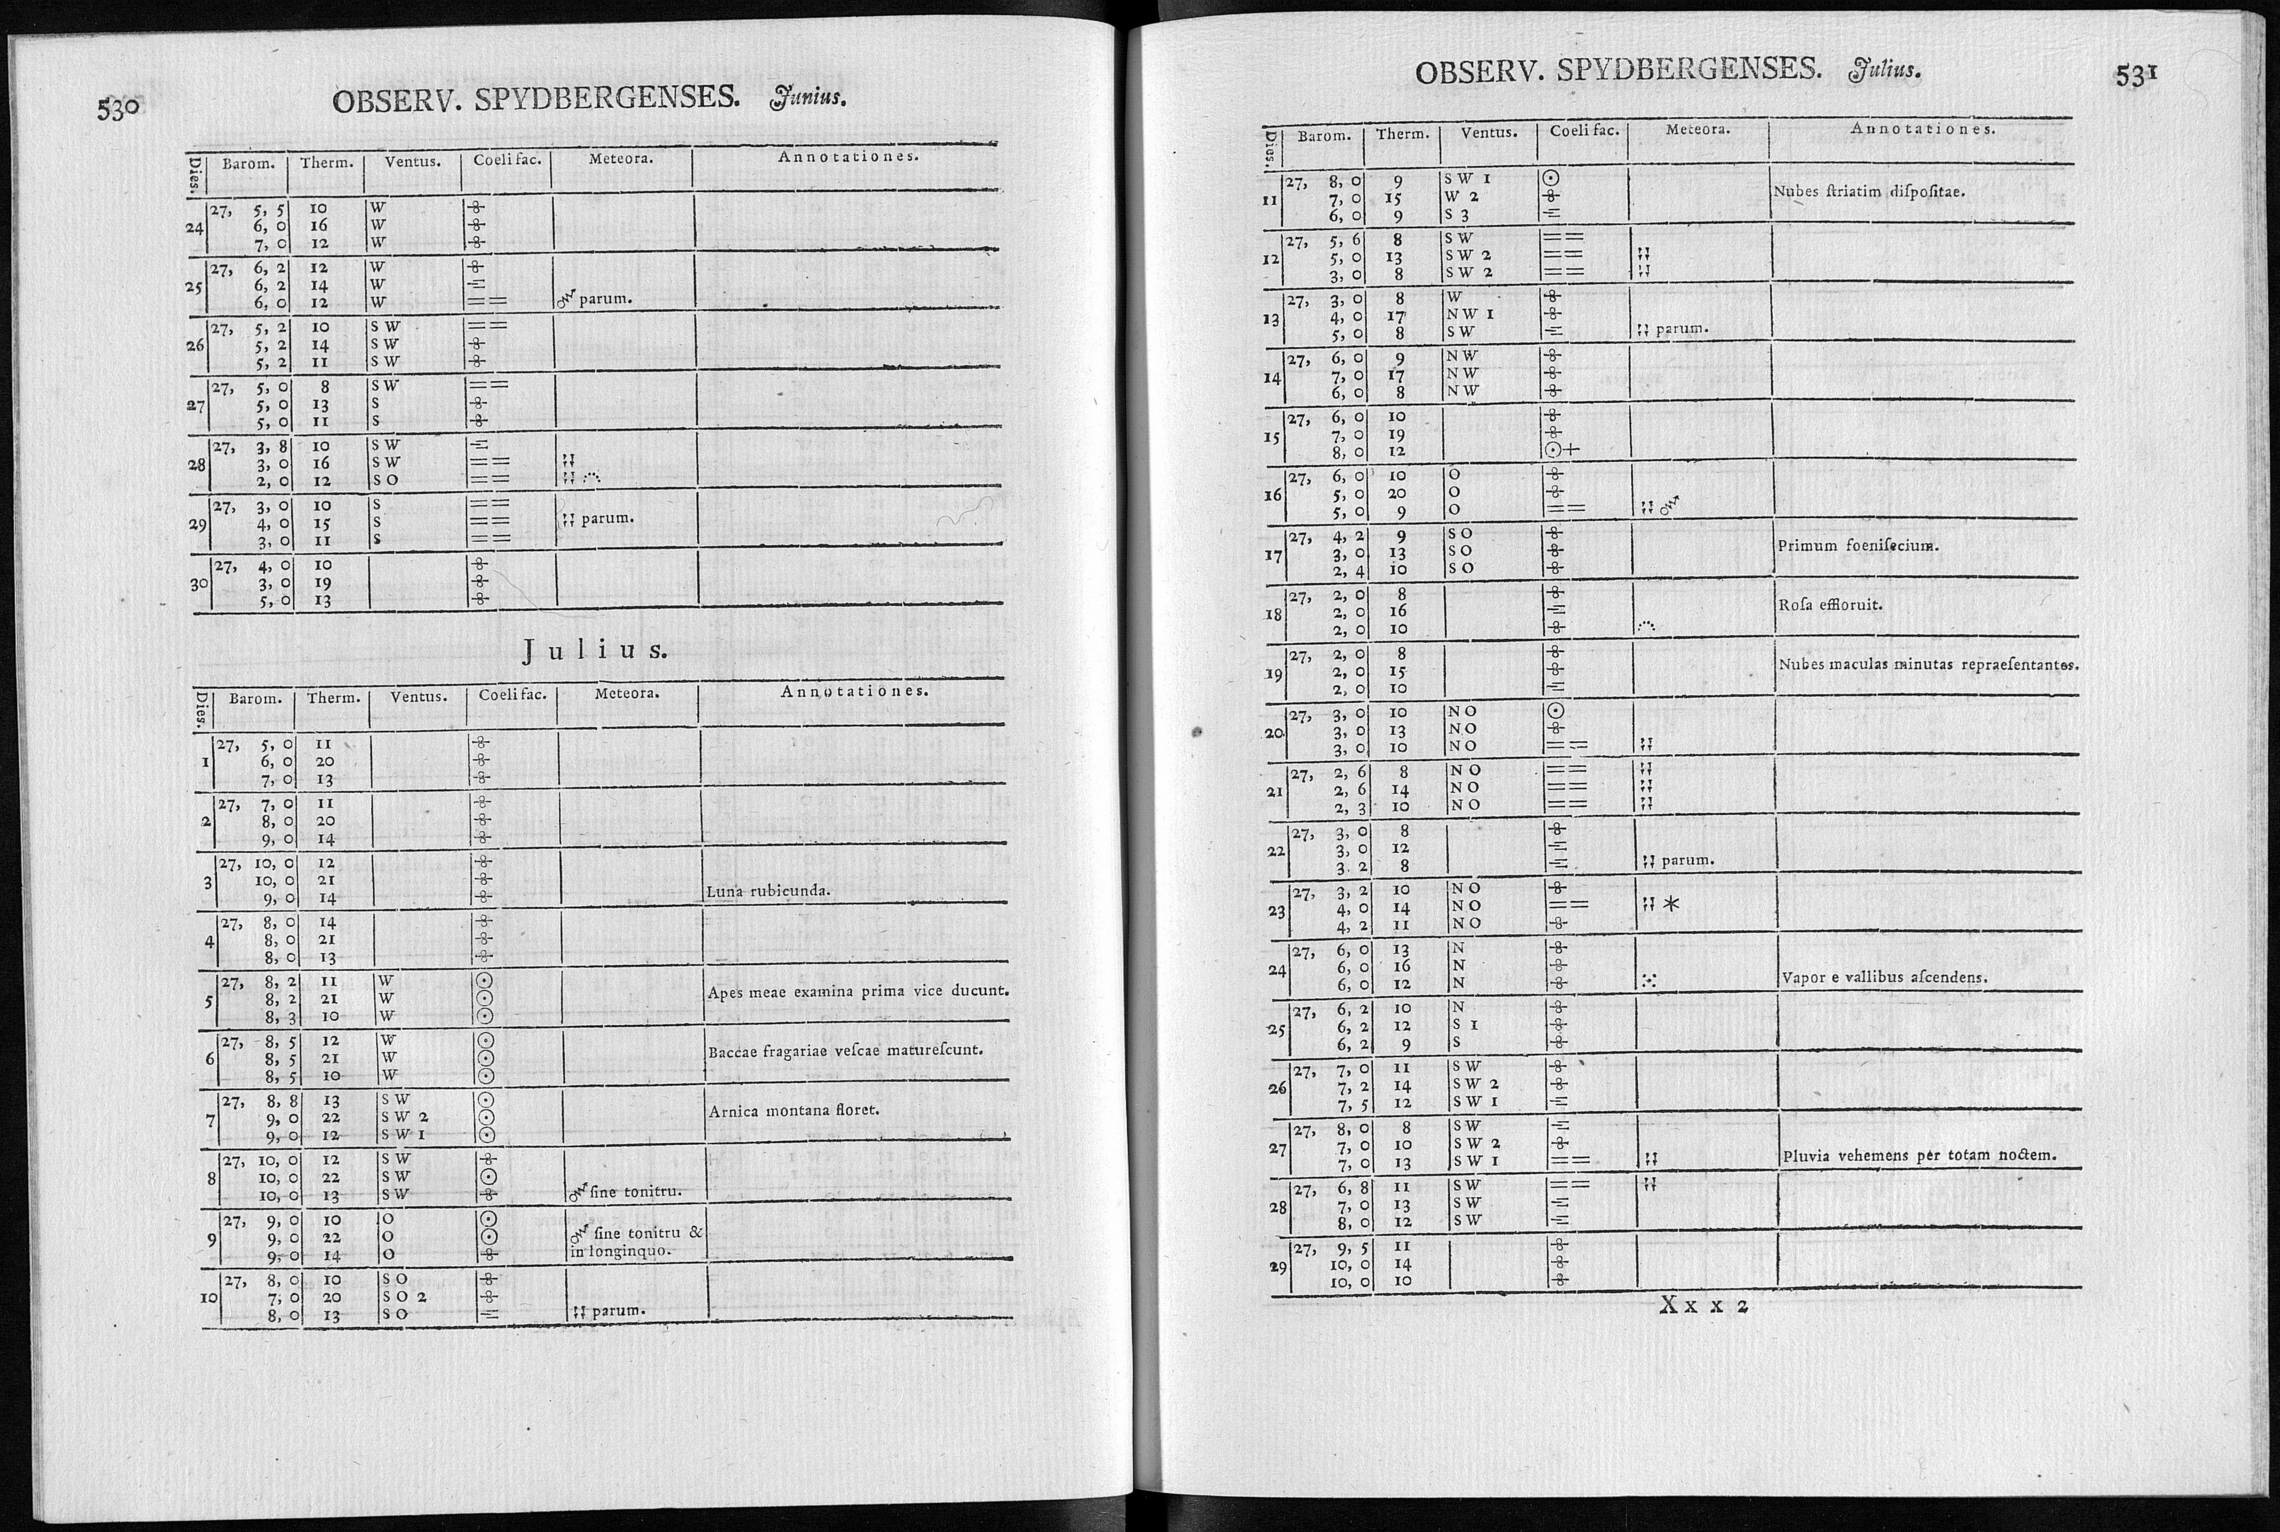 530
OBSERV. SPYDBERGENSES. Junius.
Dies. Barom. Therm. Ventus. Coeli fac. Meteora. Annotationes.
27, 5, 5 10 W
24 6, 0 16 W
7, 0 12 W
27, 6, 2 12 W
25 6, 2 14 W
6, 0 12 W == parum.
27, 5, 2 10 SW ==
26 5, 2 14 SW
5, 2 11 SW
27, 5, 0 8 SW ==
27 5, 0 13 S
5, 0 11 S
27, 3, 8 10 SW
28 3, 0 16 SW ==
2, 0 12 SO ==
27, 3, 0 10 S ==
29 4, 0 15 S == parum.
3, 0 11 S ==
27, 4, 0 10
30 3, 0 19
5, 0 13
Julius.
Dies. Barom. Therm. Ventus. Coeli fac. Meteora. Annotationes.
27, 5, 0 11
1 6, 0 20
7, 0 13
27, 7, 0 11
2 8, 0 20
9, 0 14
27, 10, 0 12
3 10, 0 21
9, 0 14 Luna rubicunda.
27, 8, 0 14
4 8, 0 21
8, 0 13
27, 8, 2 11 W ⊙
5 8, 2 21 W ⊙ Apes meae examina prima vice ducunt.
8, 3 10 W ⊙
27, 8, 5 12 W ⊙
6 8, 5 21 W ⊙ Baccae fragariae veſcae matureſcunt.
8, 5 10 W ⊙
27, 8, 8 13 SW ⊙
7 9, 0 22 SW 2 ⊙ Arnica montana floret.
9, 0 12 SW 1 ⊙
27, 10, 0 12 SW
8 10, 0 22 SW ⊙
10, 0 13 SW ſine tonitru.
27, 9, 0 10 O ⊙
9 9, 0 22 O ⊙ ſine tonitru &
9, 0 14 O in longinquo.
27, 8, 0 10 SO
10 7, 0 20 SO 2
8, 0 13 SO parum.
OBSERV. SPYDBERGENSES. Julius.
531
Dies. Barom. Therm. Ventus. Coeli fac. Meteora. Annotationes.
27, 8, 0 9 SW 1 ⊙
11 7, 0 15 W 2 Nubes ſtriatim diſpoſitae.
6, 0 9 S 3
27, 5, 6 8 SW ==
12 5, 0 13 SW 2 ==
3, 0 8 SW 2 ==
27, 3, 0 8 W
13 4, 0 17 NW 1
5, 0 8 SW parum.
27, 6, 0 9 NW
14 7, 0 17 NW
6, 0 8 NW
27, 6, 0 10
15 7, 0 19
8, 0 12 ⊙+
27, 6, 0 10 O
16 5, 0 20 O
5, 0 9 O ==
27, 4, 2 9 SO
17 3, 0 13 SO Primum foeniſecium.
2, 4 10 SO
27, 2, 0 8
18 2, 0 16 Roſa effloruit.
2, 0 10
27, 2, 0 8
19 2, 0 15 Nubes maculas minutas repraeſentantes.
2, 0 10
27, 3, 0 10 NO ⊙
20 3, 0 13 NO
3, 0 10 NO ==
27, 2, 6 8 NO ==
21 2, 6 14 NO ==
2, 3 10 NO ==
27, 3, 0 8
22 3, 0 12
3, 2 8 parum.
27, 3, 2 10 NO
23 4, 0 14 NO == *
4, 2 11 NO
27, 6, 0 13 N
24 6, 0 16 N
6, 0 12 N Vapor e vallibus aſcendens.
27, 6, 2 10 N
25 6, 2 12 S 1
6, 2 9 S
27, 7, 0 11 SW
26 7, 2 14 SW 2
7, 5 12 SW 1
27, 8, 0 8 SW
27 7, 0 10 SW 2
7, 0 13 SW 1 == Pluvia vehemens per totam noctem.
27, 6, 8 11 SW ==
28 7, 0 13 SW
8, 0 12 SW
27, 9, 5 11
29 10, 0 14
10, 0 10
Xxx 2